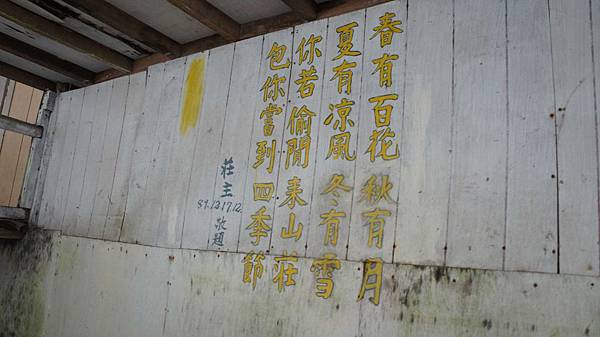 春有百花秋有月
夏有凉風冬有雪
你若偷閒来山莊
包你嘗到四季節
莊主
87.12.17.12
敬題